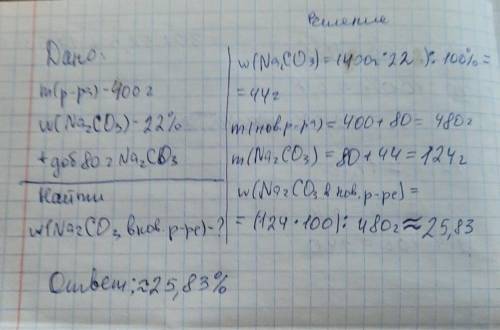 Решение
Дано:
m(р-ра)-400г
w(Na2CO3)-22%
+ доб 80 г Na2CO3
Найти
w(Na2CO3 в нов. р-ре)-?
w(Na2CO3)=(400г·22):100%=
=44г
m(нов.р-ра)=400+80=480г
m(Na2CO3)=80+44=124г
w(Na2CO3 в нов. р-ре)=
=(124·100):480г≈25,83
Ответ:≈25,83%